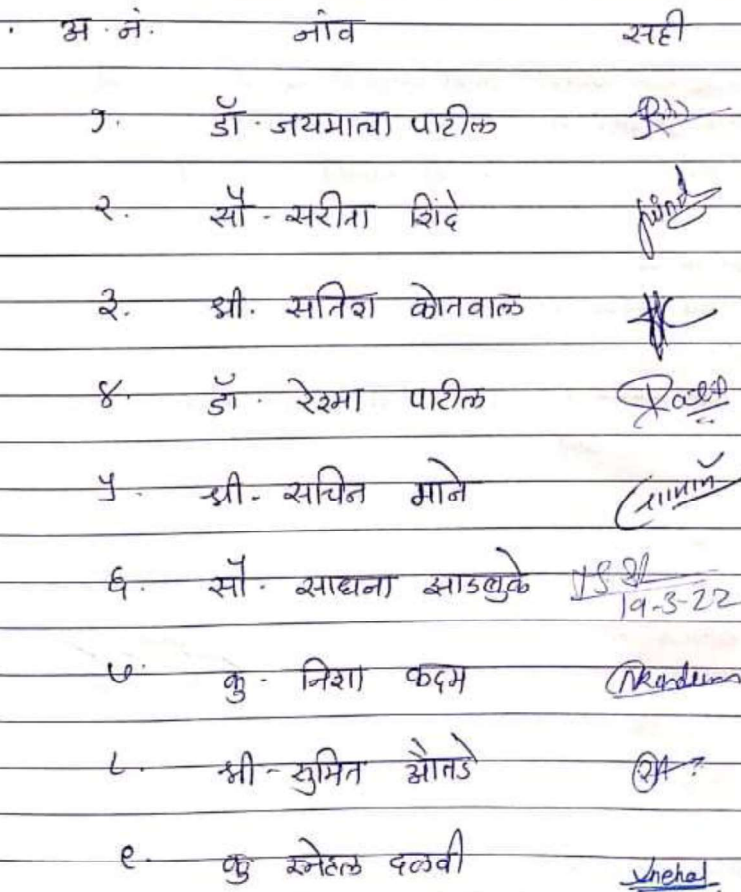 अ. नं. नांव सही
१. डॉ. जयमाला पाटील
२. सौ - सरीता शिंदे
३. श्री. सतिश कोतवाल
४. डॉ. रेश्मा पाटील
५. श्री - सचिन माने
६. सौ. साधना साडलुके
19-3-22
७. कु - निशा कदम Nkadam
८. श्री - सुमित औताडे
९. कु स्नेहल दळवी Snehal